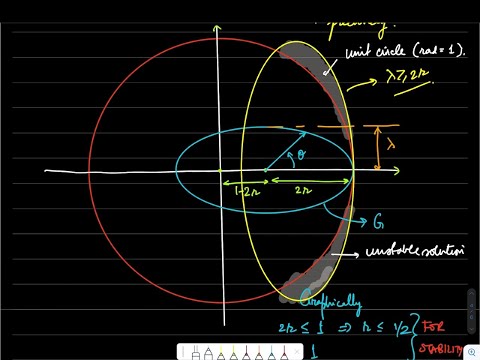 unit circle (rad = 1).
λ ≥ 2r
θ
λ
1-2r
2r
G
unstable solution
Graphically
2r ≤ 1 ⇒ r ≤ 1/2 } FOR
1 STABILITY